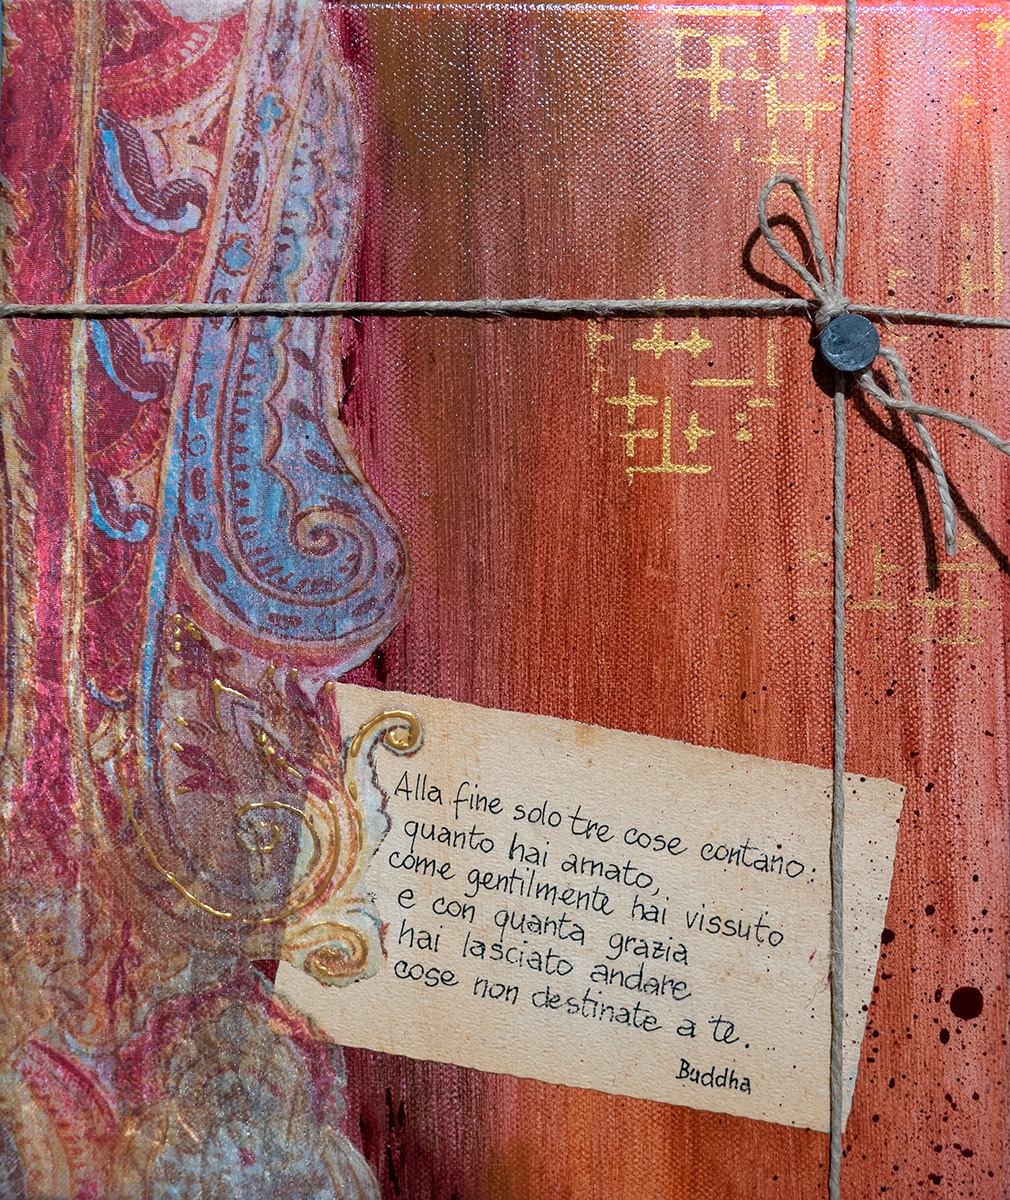 Alla fine solo tre cose contano:
quanto hai amato,
come gentilmente hai vissuto
e con quanta grazia
hai lasciato andare
cose non destinate a te.
Buddha